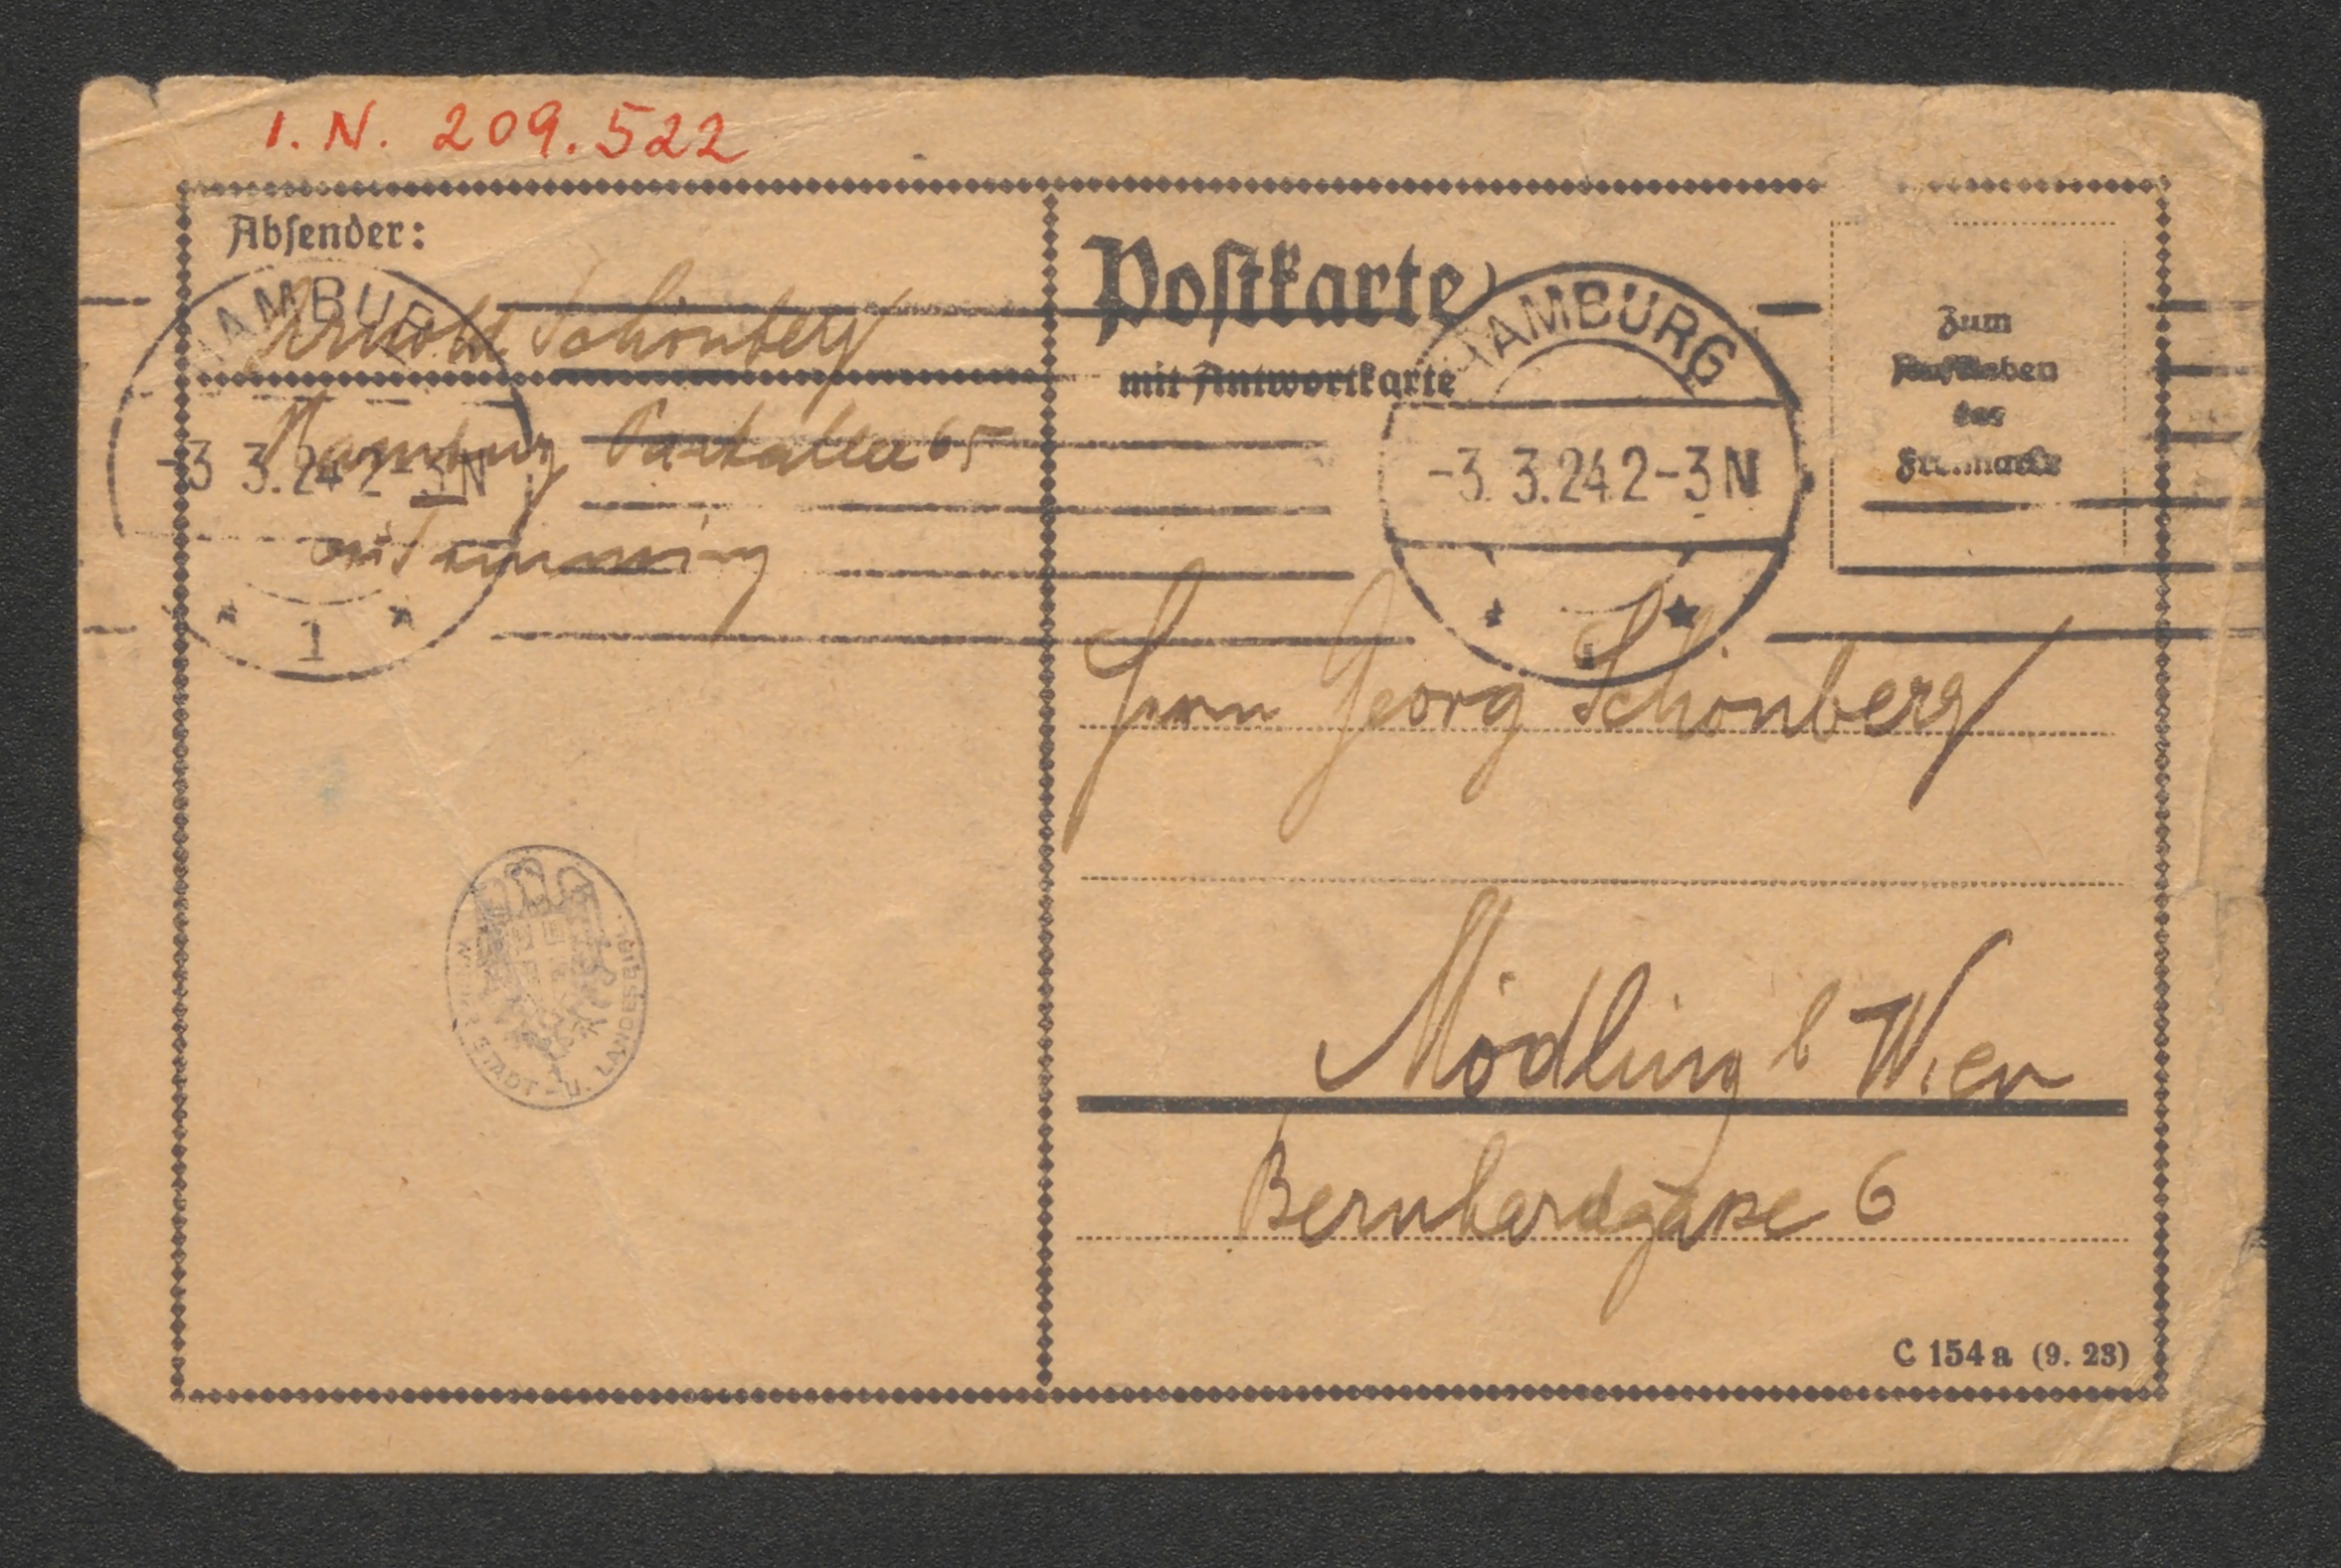 I. N. 209.522
Absender:
Arnold Schönberg
Hamburg Parkallee 65
bei
HAMBURG
-3 3.24 2-3N
1
Postkarte
mit Antwortkarte
HAMBURG
-3. 3.24 2-3N
1
Zum
Aufkleben
der
Freimarke
Herrn Georg Schönberg
Mödling b Wien
Bernhardgasse 6
WIENER STADT- U. LANDESBIBL.
C 154a (9. 23)